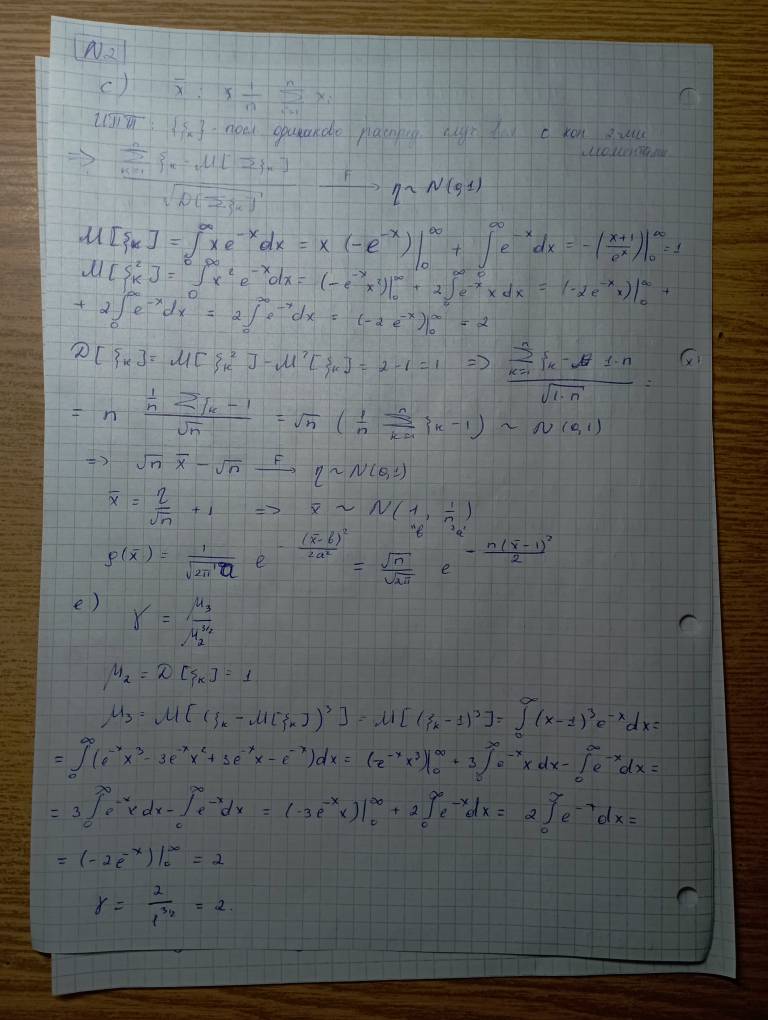 N2
c) x̄ : x 1/n Σ_{i=1}^{n} x_i
ЦПТ: {ξ_k} - посл одинаково распред. случ вел с кон 2-ми
моментами
=> (Σ_{k=1}^{n} ξ_k - M[Σξ_k]) / √(D[Σξ_k]) —F→ η ~ N(0,1)
M[ξ_k] = ∫_0^∞ x e^{-x} dx = x (-e^{-x})|_0^∞ + ∫_0^∞ e^{-x} dx = -((x+1)/e^x)|_0^∞ = 1
M[ξ_k^2] = ∫_0^∞ x^2 e^{-x} dx = (-e^{-x} x^2)|_0^∞ + 2∫_0^∞ e^{-x} x dx = (-2e^{-x} x)|_0^∞ +
+ 2∫_0^∞ e^{-x} dx = 2∫_0^∞ e^{-x} dx = (-2e^{-x})|_0^∞ = 2
D[ξ_k] = M[ξ_k^2] - M^2[ξ_k] = 2-1 = 1 => (Σ_{k=1}^{n} ξ_k - 1·n) / √(1·n) =
= n (1/n Σξ_k - 1) / √n = √n (1/n Σ_{k=1}^{n} ξ_k - 1) ~ N(0,1)
=> √n x̄ - √n —F→ η ~ N(0,1)
x̄ = η/√n + 1 => x̄ ~ N(1, 1/n)
"b "a"
p(x̄) = 1/(√(2π) a) e^{-(x̄-b)^2/(2a^2)} = √n/√(2π) e^{-n(x̄-1)^2/2}
e) γ = μ_3 / μ_2^{3/2}
μ_2 = D[ξ_k] = 1
μ_3 = M[(ξ_k - M[ξ_k])^3] = M[(ξ_k-1)^3] = ∫_0^∞ (x-1)^3 e^{-x} dx =
= ∫_0^∞ (e^{-x} x^3 - 3e^{-x} x^2 + 3e^{-x} x - e^{-x}) dx = (-e^{-x} x^3)|_0^∞ + 3∫_0^∞ e^{-x} x dx - ∫_0^∞ e^{-x} dx =
= 3∫_0^∞ e^{-x} x dx - ∫_0^∞ e^{-x} dx = (-3e^{-x} x)|_0^∞ + 2∫_0^∞ e^{-x} dx = 2∫_0^∞ e^{-x} dx =
= (-2e^{-x})|_0^∞ = 2
γ = 2 / 1^{3/2} = 2.